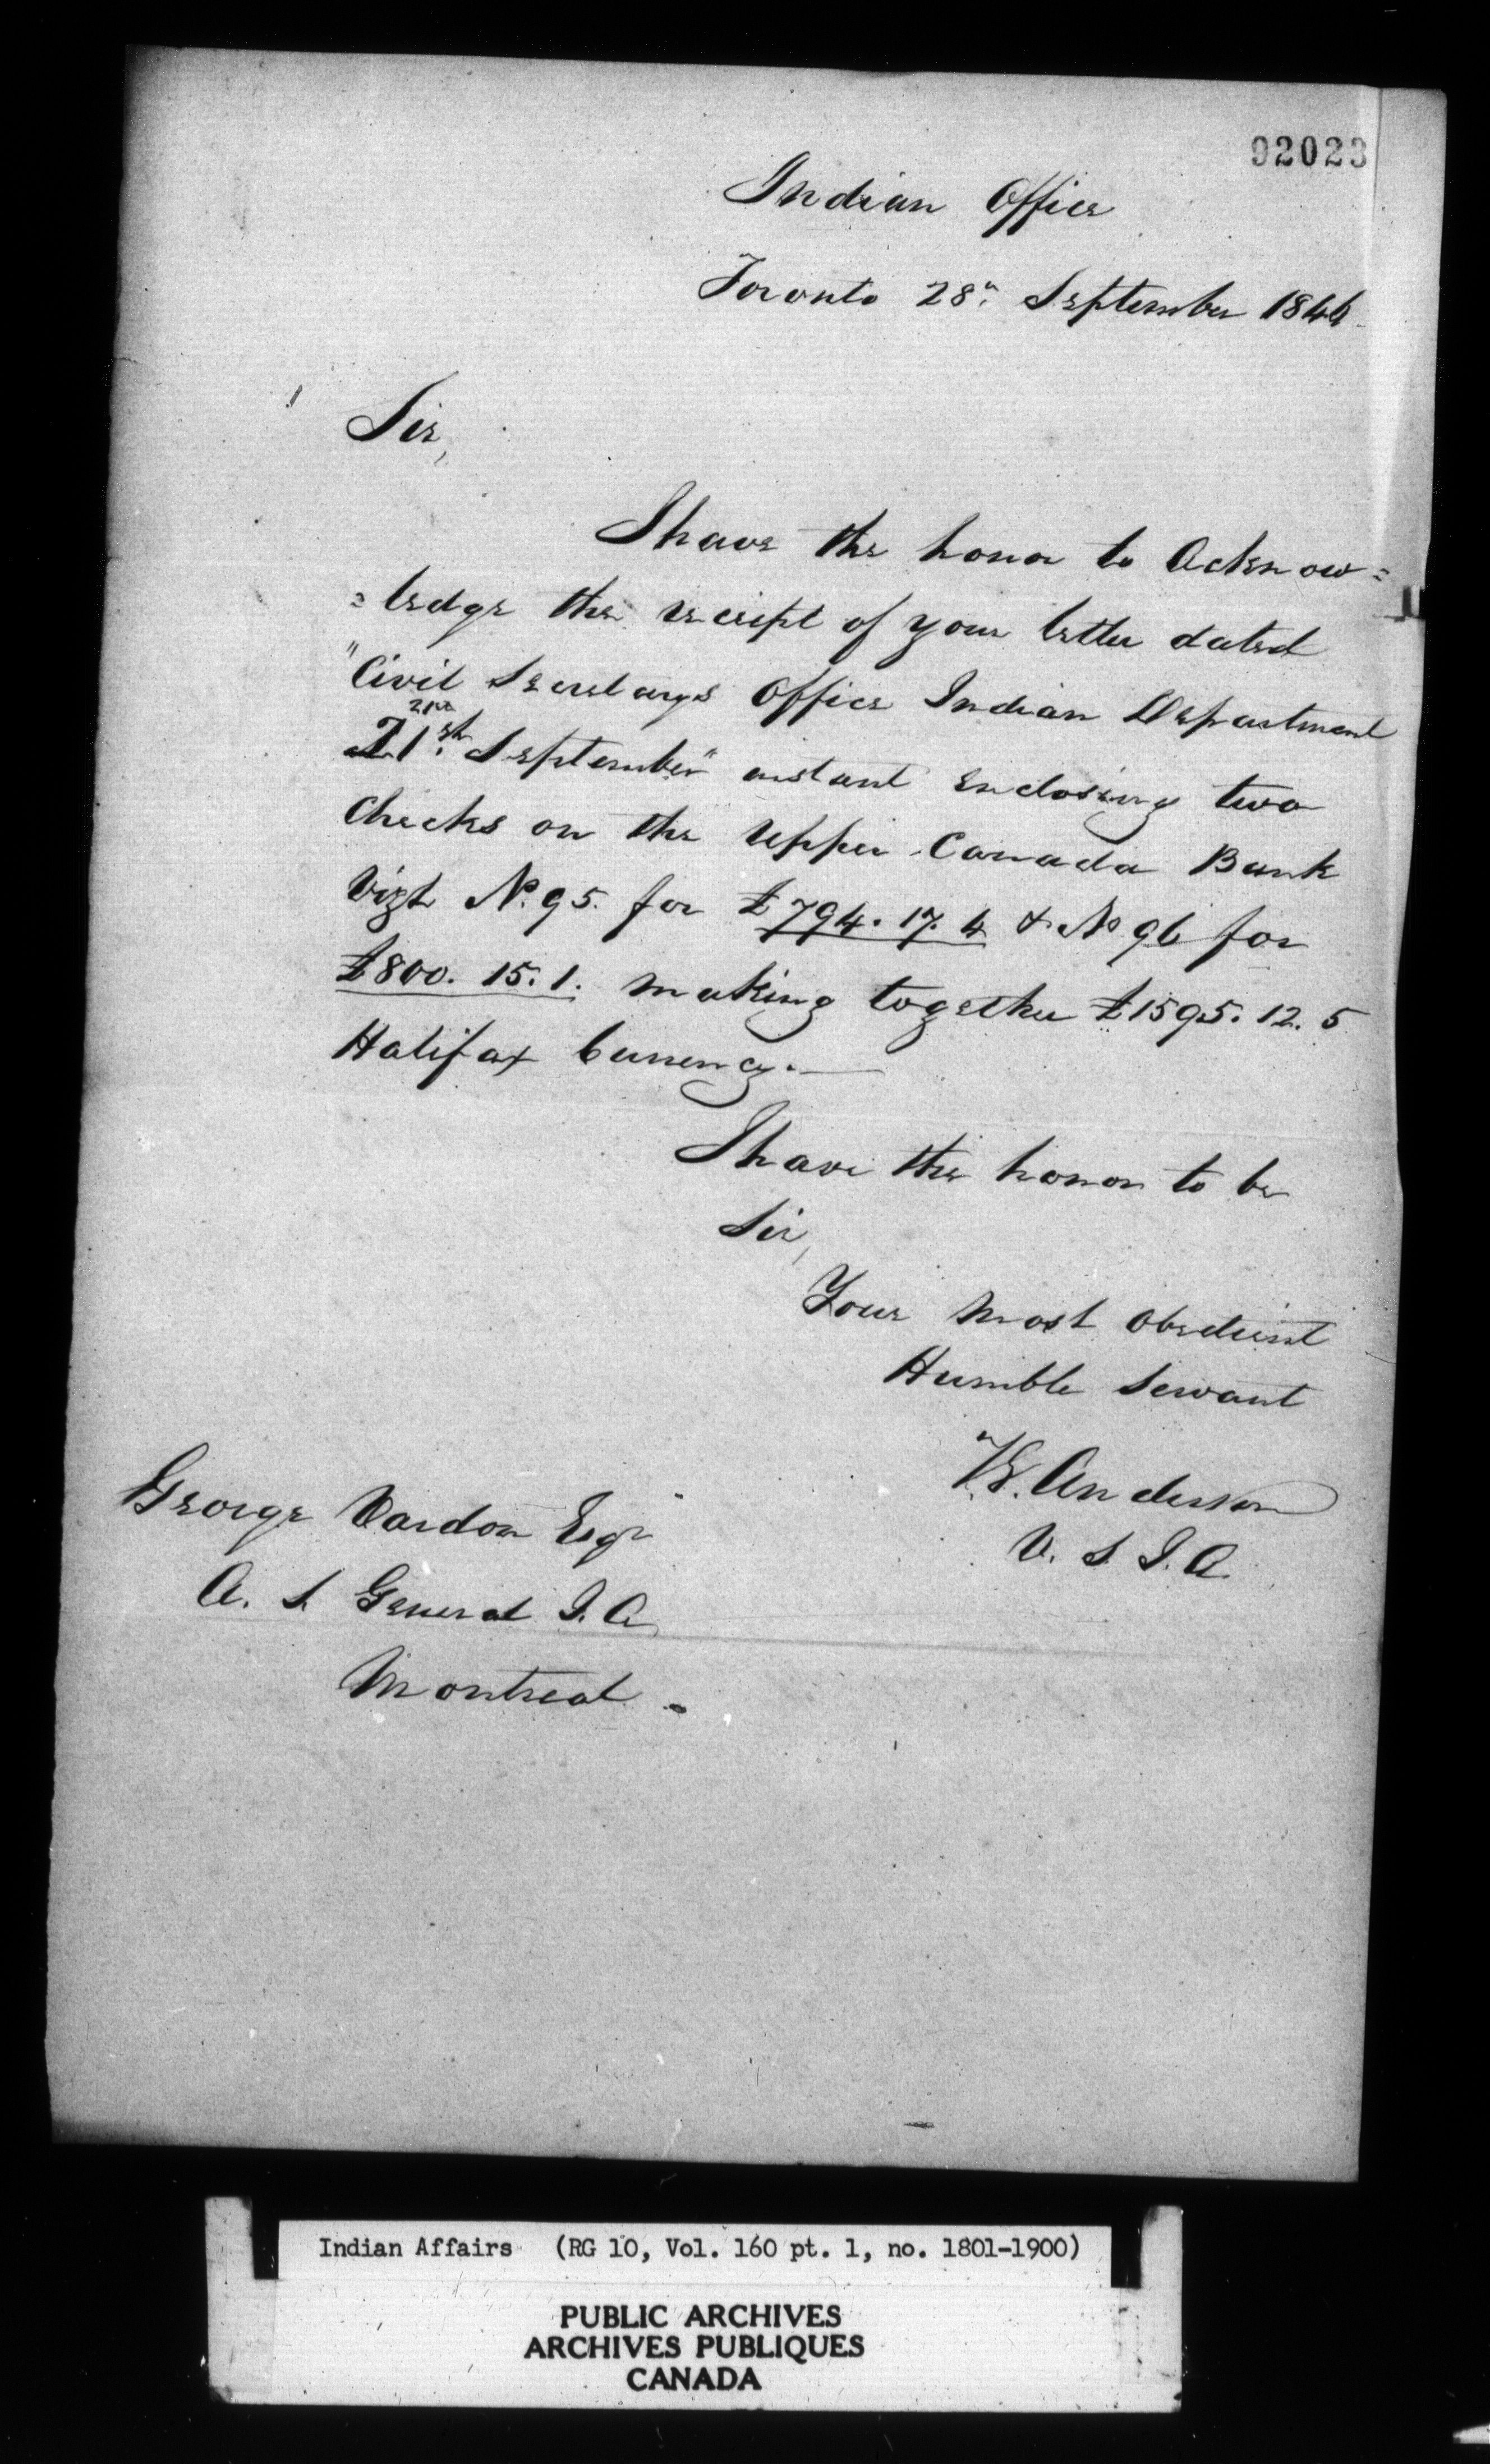 92023
Indian Office
Toronto 28th September 1846
Sir,
I have the honor to Acknow=
=ledge the receipt of your letter dated
"Civil Secretarys Office Indian Department
21st
21st September" instant enclosing two
Checks on the Upper Canada Bank
Vizt No. 95. for £794. 17. 4 & No 96 for
£800. 15. 1. making together £1595. 12. 5
Halifax Currency.—
I have the honor to be
Sir,
Your most obedient
Humble Servant
Anderson
George Vardon Esqr
V. S. I. A.
A. S. General I. A.
Montreal -
Indian Affairs (RG 10, Vol. 160 pt. 1, no. 1801-1900)
PUBLIC ARCHIVES
ARCHIVES PUBLIQUES
CANADA